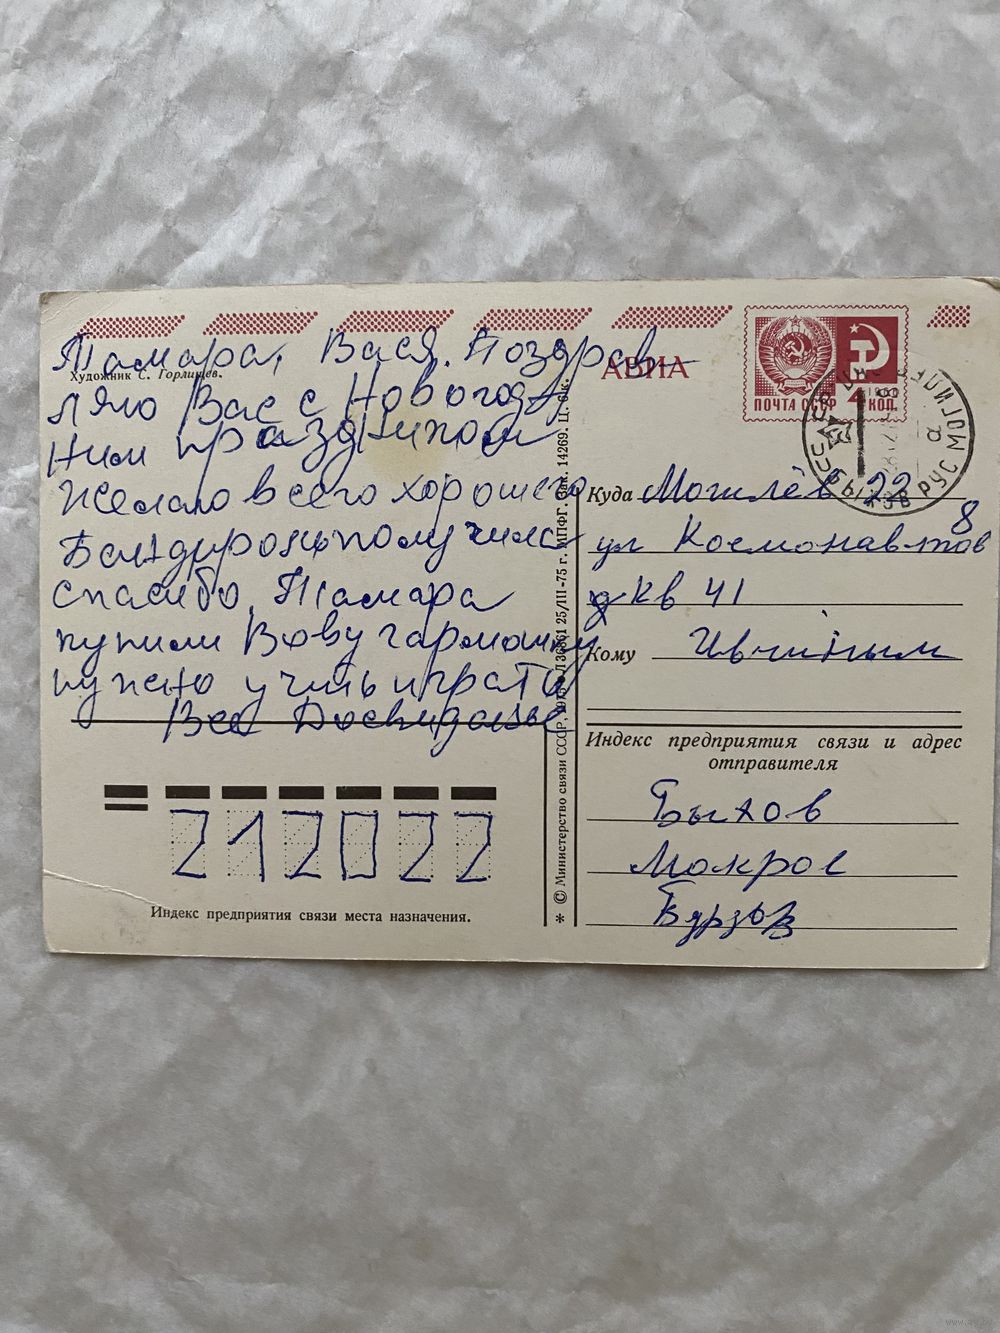 Тамара, Вася. Поздрав-
ляю Вас с Новогод
ним праздником
Желаю всего хорошего
получила
спасибо, Тамара
купили Вову гармошку
нужно учить играть
Все Досвидание
Художник С. Горлищев.
АВИА
ПОЧТА СССР 4 КОП.
Куда Могилёв 22
ул Космонавтов 8
кв 41
Кому
Индекс предприятия связи и адрес
отправителя
Быхов
Мокрое
212022
Индекс предприятия связи места назначения.
© Министерство связи СССР, 1975 25/III-75 г. МПФГ. Зак. 14269. Ц.